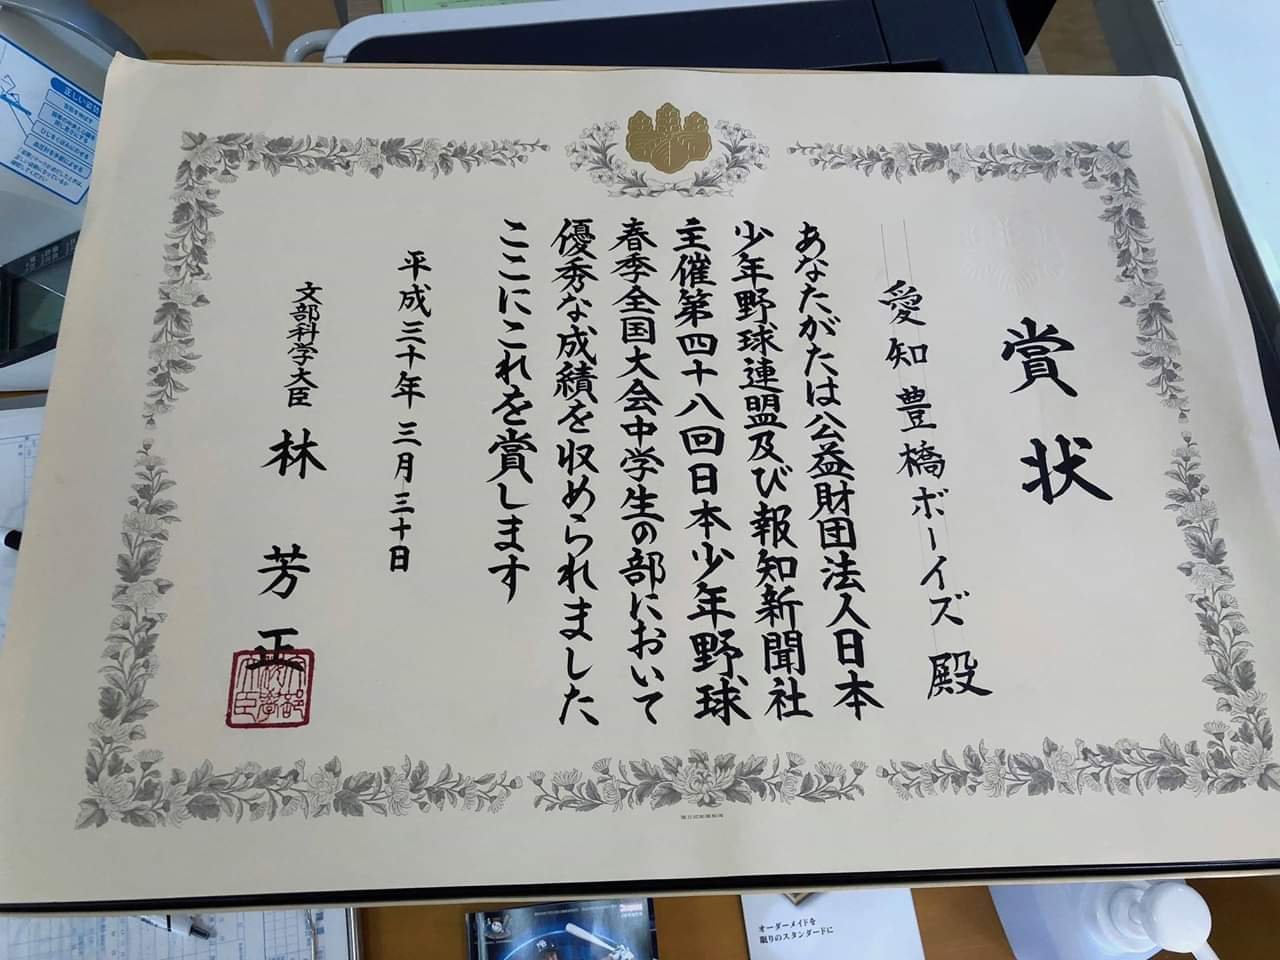 賞状
愛知豊橋ボーイズ殿
あなたがたは公益財団法人日本
少年野球連盟及び報知新聞社
主催第四十八回日本少年野球
春季全国大会中学生の部において
優秀な成績を収められました
ここにこれを賞します
平成三十年三月三十日
文部科学大臣 林芳正
正しい姿勢
オーダーメイドを
眠りのスタンダードに